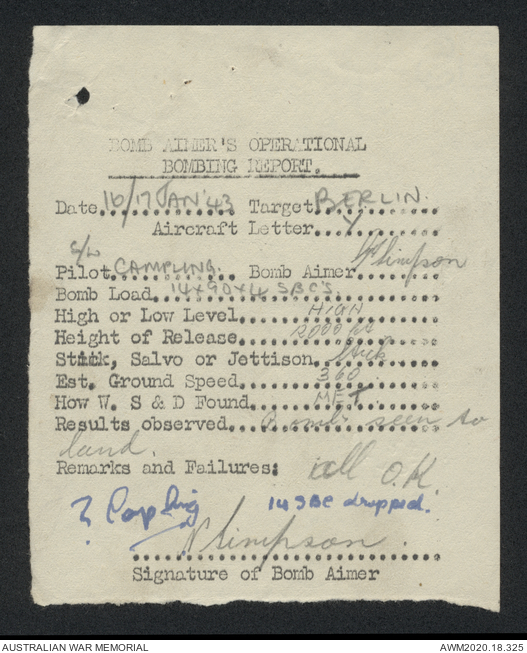 BOMB AIMER'S OPERATIONAL
BOMBING REPORT.
Date 16/17 JAN '43 Target BERLIN.
Aircraft Letter Y
S/L
Pilot CAMPLING. Bomb Aimer Simpson
Bomb Load 14x90x4 SBC'S.
High or Low Level HIGH
Height of Release
Stick, Salvo or Jettison Stick
Est. Ground Speed 360
How W. S & D Found MET
Results observed Bombs seen to
land.
Remarks and Failures: all O.K.
? 14 SBC dropped.
Simpson.
Signature of Bomb Aimer
AUSTRALIAN WAR MEMORIAL AWM2020.18.325